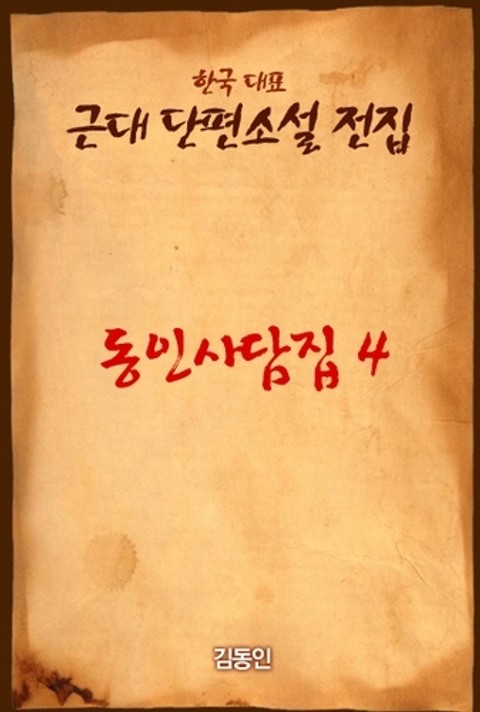 한국 대표
근대 단편소설 전집
동인사담집 4
김동인